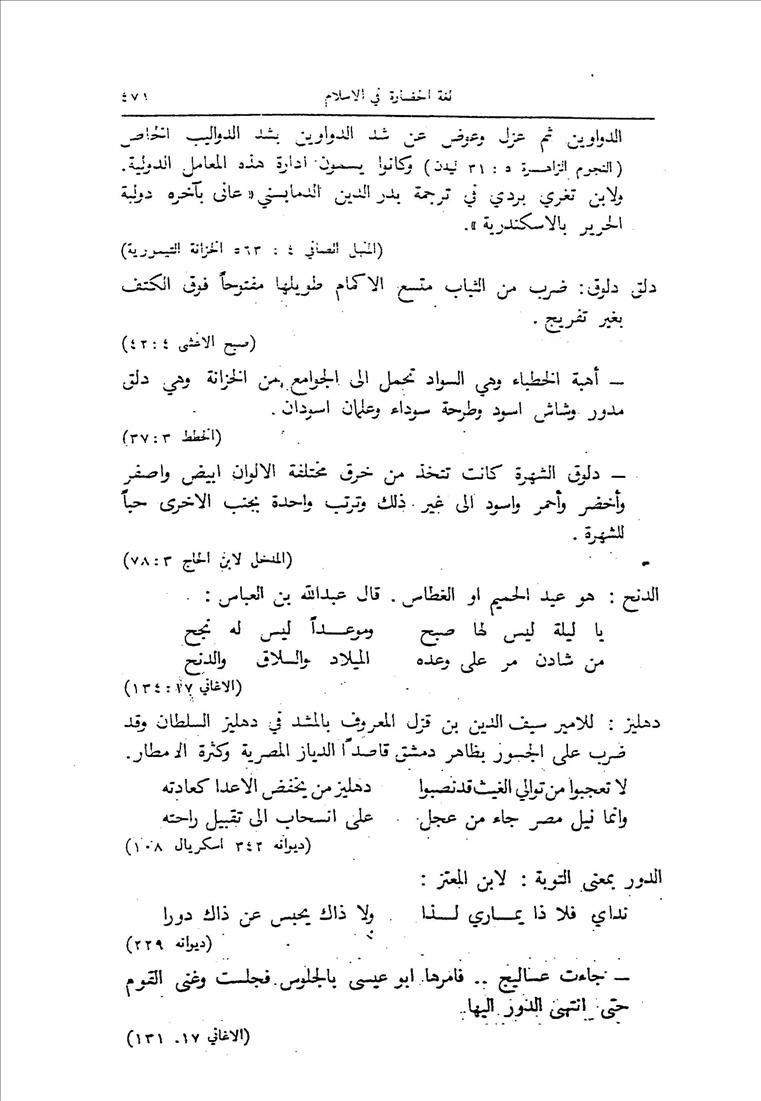 لغة الحضارة في الاسلام ٤٧١
الدواوين ثم عزل وعوض عن شد الدواوين بشد الدواليب الخاص
(النجوم الزاهرة ٥ : ٣١ ليدن) وكانوا يسمون ادارة هذه المعامل الدولية.
ولابن تغري بردي في ترجمة بدر الدين الدمايني «عانى بآخره دولبة
الحرير بالاسكندرية».
(المنهل الصافي ٤ : ٥٦٣ الخزانة التيمورية)
دلق دلوق: ضرب من الثياب متسع الاكمام طويلها مفتوحاً فوق الكتف
بغير تفريج .
(صبح الاعشى ٤ :٤٢)
— أهبة الخطباء وهي السواد تحمل الى الجوامع من الخزانة وهي دلق
مدور وشاش اسود وطرحة سوداء وعلمان اسودان .
(الخطط ٣ :٣٧)
— دلوق الشهرة كانت تتخذ من خرق مختلفة الالوان ابيض واصفر
وأخضر وأحمر واسود الى غير ذلك وترتب واحدة بجنب الاخرى حباً
للشهرة .
(المدخل لابن الحاج ٣ :٧٨)
الدنح : هو عيد الحميم او الغطاس . قال عبدالله بن العباس :
يا ليلة ليس لها صبح وموعـداً ليس له نجح
من شادن مر على وعده الميلاد والسلاق والدنح
(الاغاني ١٧ :١٣٤)
دهليز : للامير سيف الدين بن قزل المعروف بالمشد في دهليز السلطان وقد
ضرب على الجسور بظاهر دمشق قاصداً الديار المصرية وكثرة الامطار.
لا تعجبوا من توالي الغيث قد نصبوا دهليز من يخفض الاعدا كعادته
وانما نيل مصر جاء من عجل على انسحاب الى تقبيل راحته
(ديوانه ٣٤٢ اسكريال ١٠٨)
الدور بمعنى النوبة : لابن المعتز :
نداي فلا ذا يمـاري لـذا ولا ذاك يحبس عن ذاك دورا
(ديوانه ٢٢٩)
— جاءت عساليج .. فامرها ابو عيسى بالجلوس فجلست وغنى القوم
حتى انتهى الدور اليها.
(الاغاني ١٧. ١٣١)